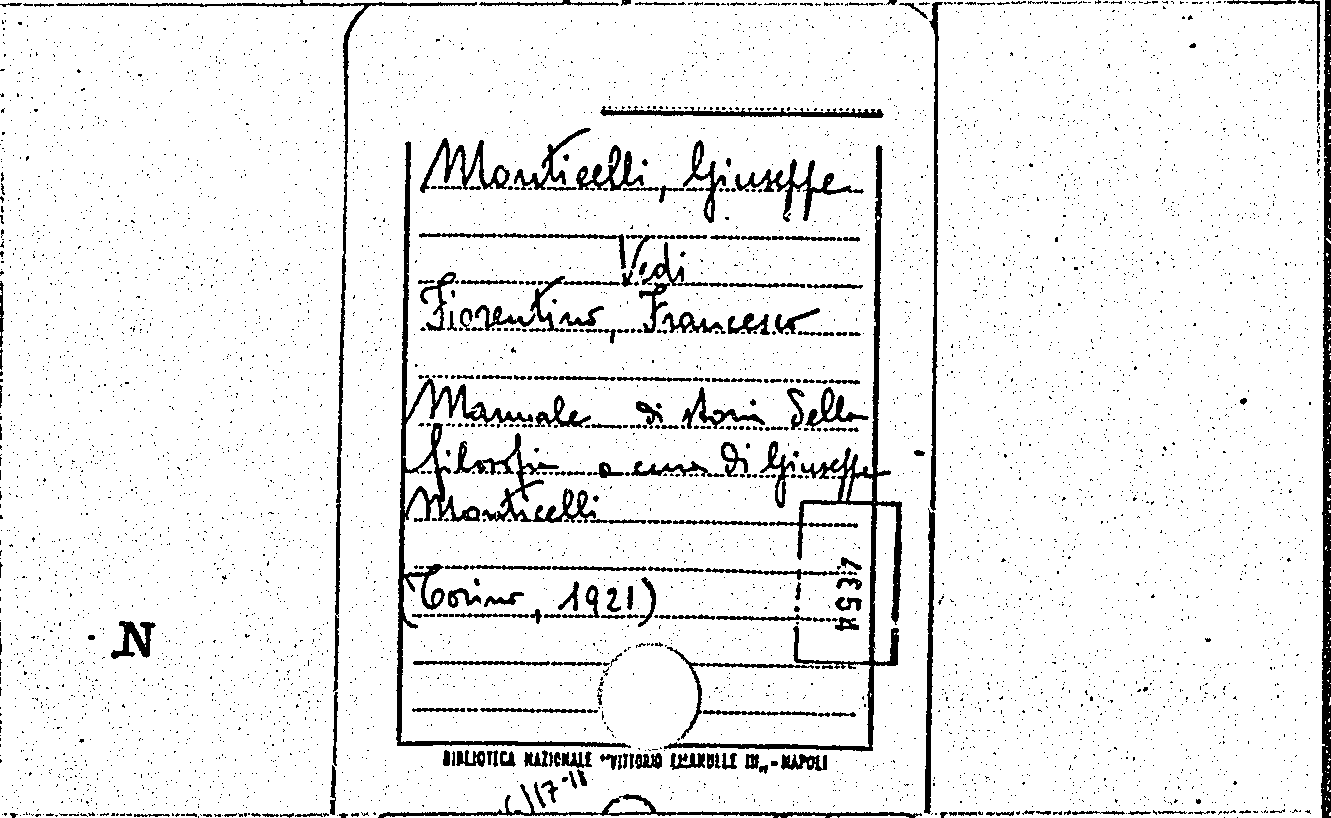 Monticelli, Giuseppe
Vedi
Fiorentino, Francesco
Manuale di storia della
filosofia a cura di Giuseppe
Monticelli
(Torino, 1921)
N
BIBLIOTECA NAZIONALE "VITTORIO EMANUELE III„ - NAPOLI